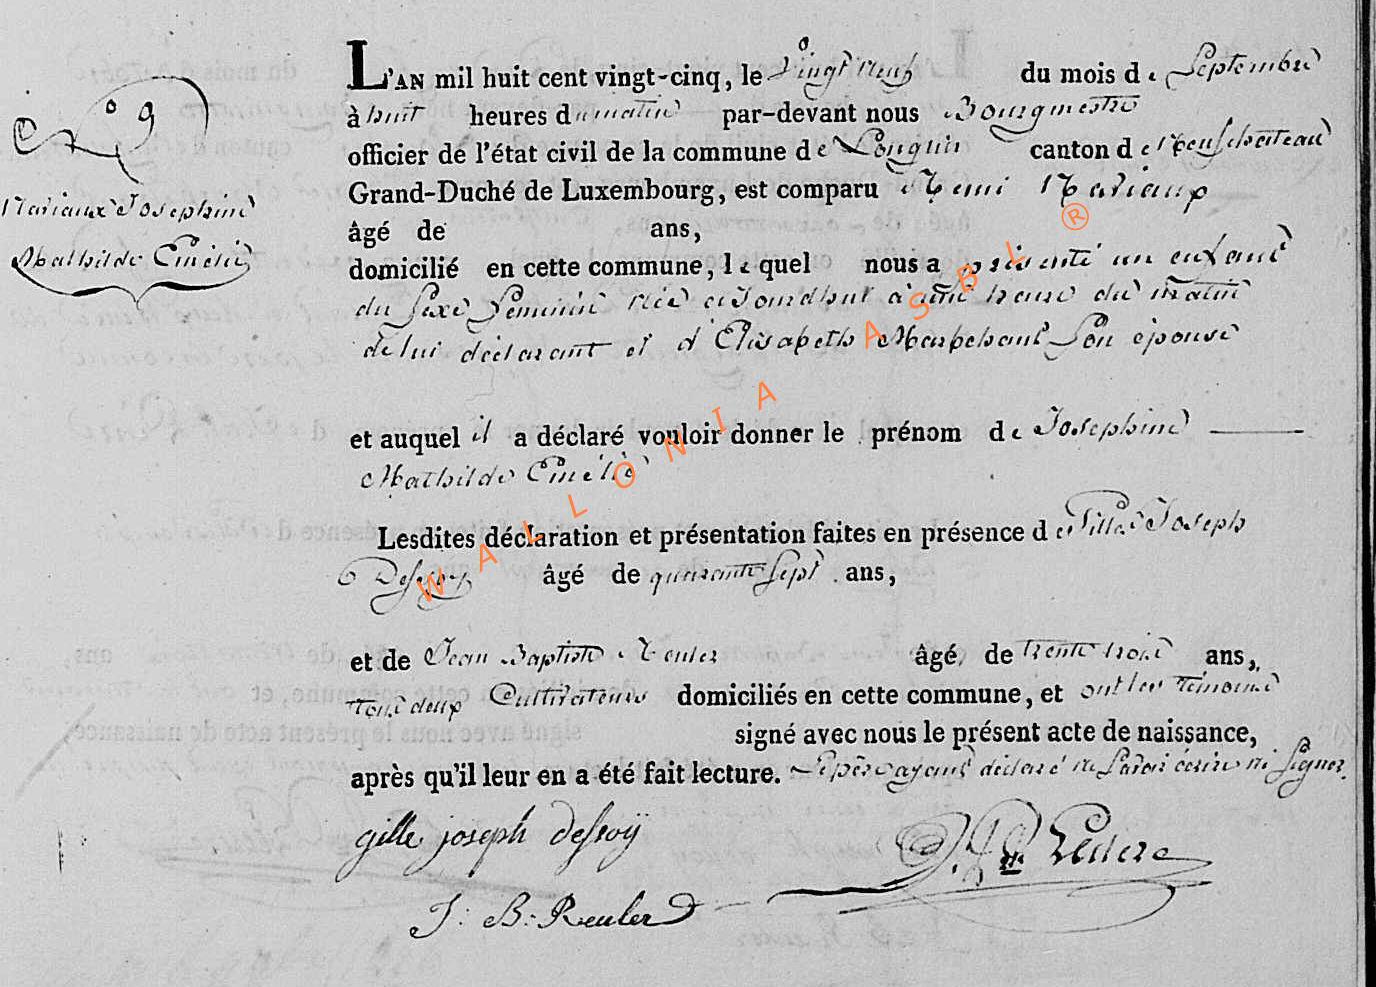 L'AN mil huit cent vingt-cinq, le Vingt neuf du mois de Septembre
à huit heures du matin par-devant nous Bourgmestre
officier de l'état civil de la commune de canton de Neufchateau
Nº 9
Grand-Duché de Luxembourg, est comparu Remi Mariaux
Mariaux Josephine
Mathilde Emélie
âgé de ans,
domicilié en cette commune, le quel nous a présenté un enfant
du Sexe Feminin née ajourdhui à heure du matin
de lui déclarant et d'Elisabeth Son épouse
et auquel il a déclaré vouloir donner le prénom de Josephine
Mathilde Emélie
Lesdites déclaration et présentation faites en présence de Gille Joseph
Dessoy âgé de quarante Sept ans,
et de Jean Baptiste Reuler âgé de trente trois ans,
tous deux Cultivateurs domiciliés en cette commune, et ont les témoins
signé avec nous le présent acte de naissance,
après qu'il leur en a été fait lecture. Le père ayant déclaré ne Savoir écrire ni Signer.
gille joseph dessoÿ
J: B: Reuler
WALLONIA ASBL ®